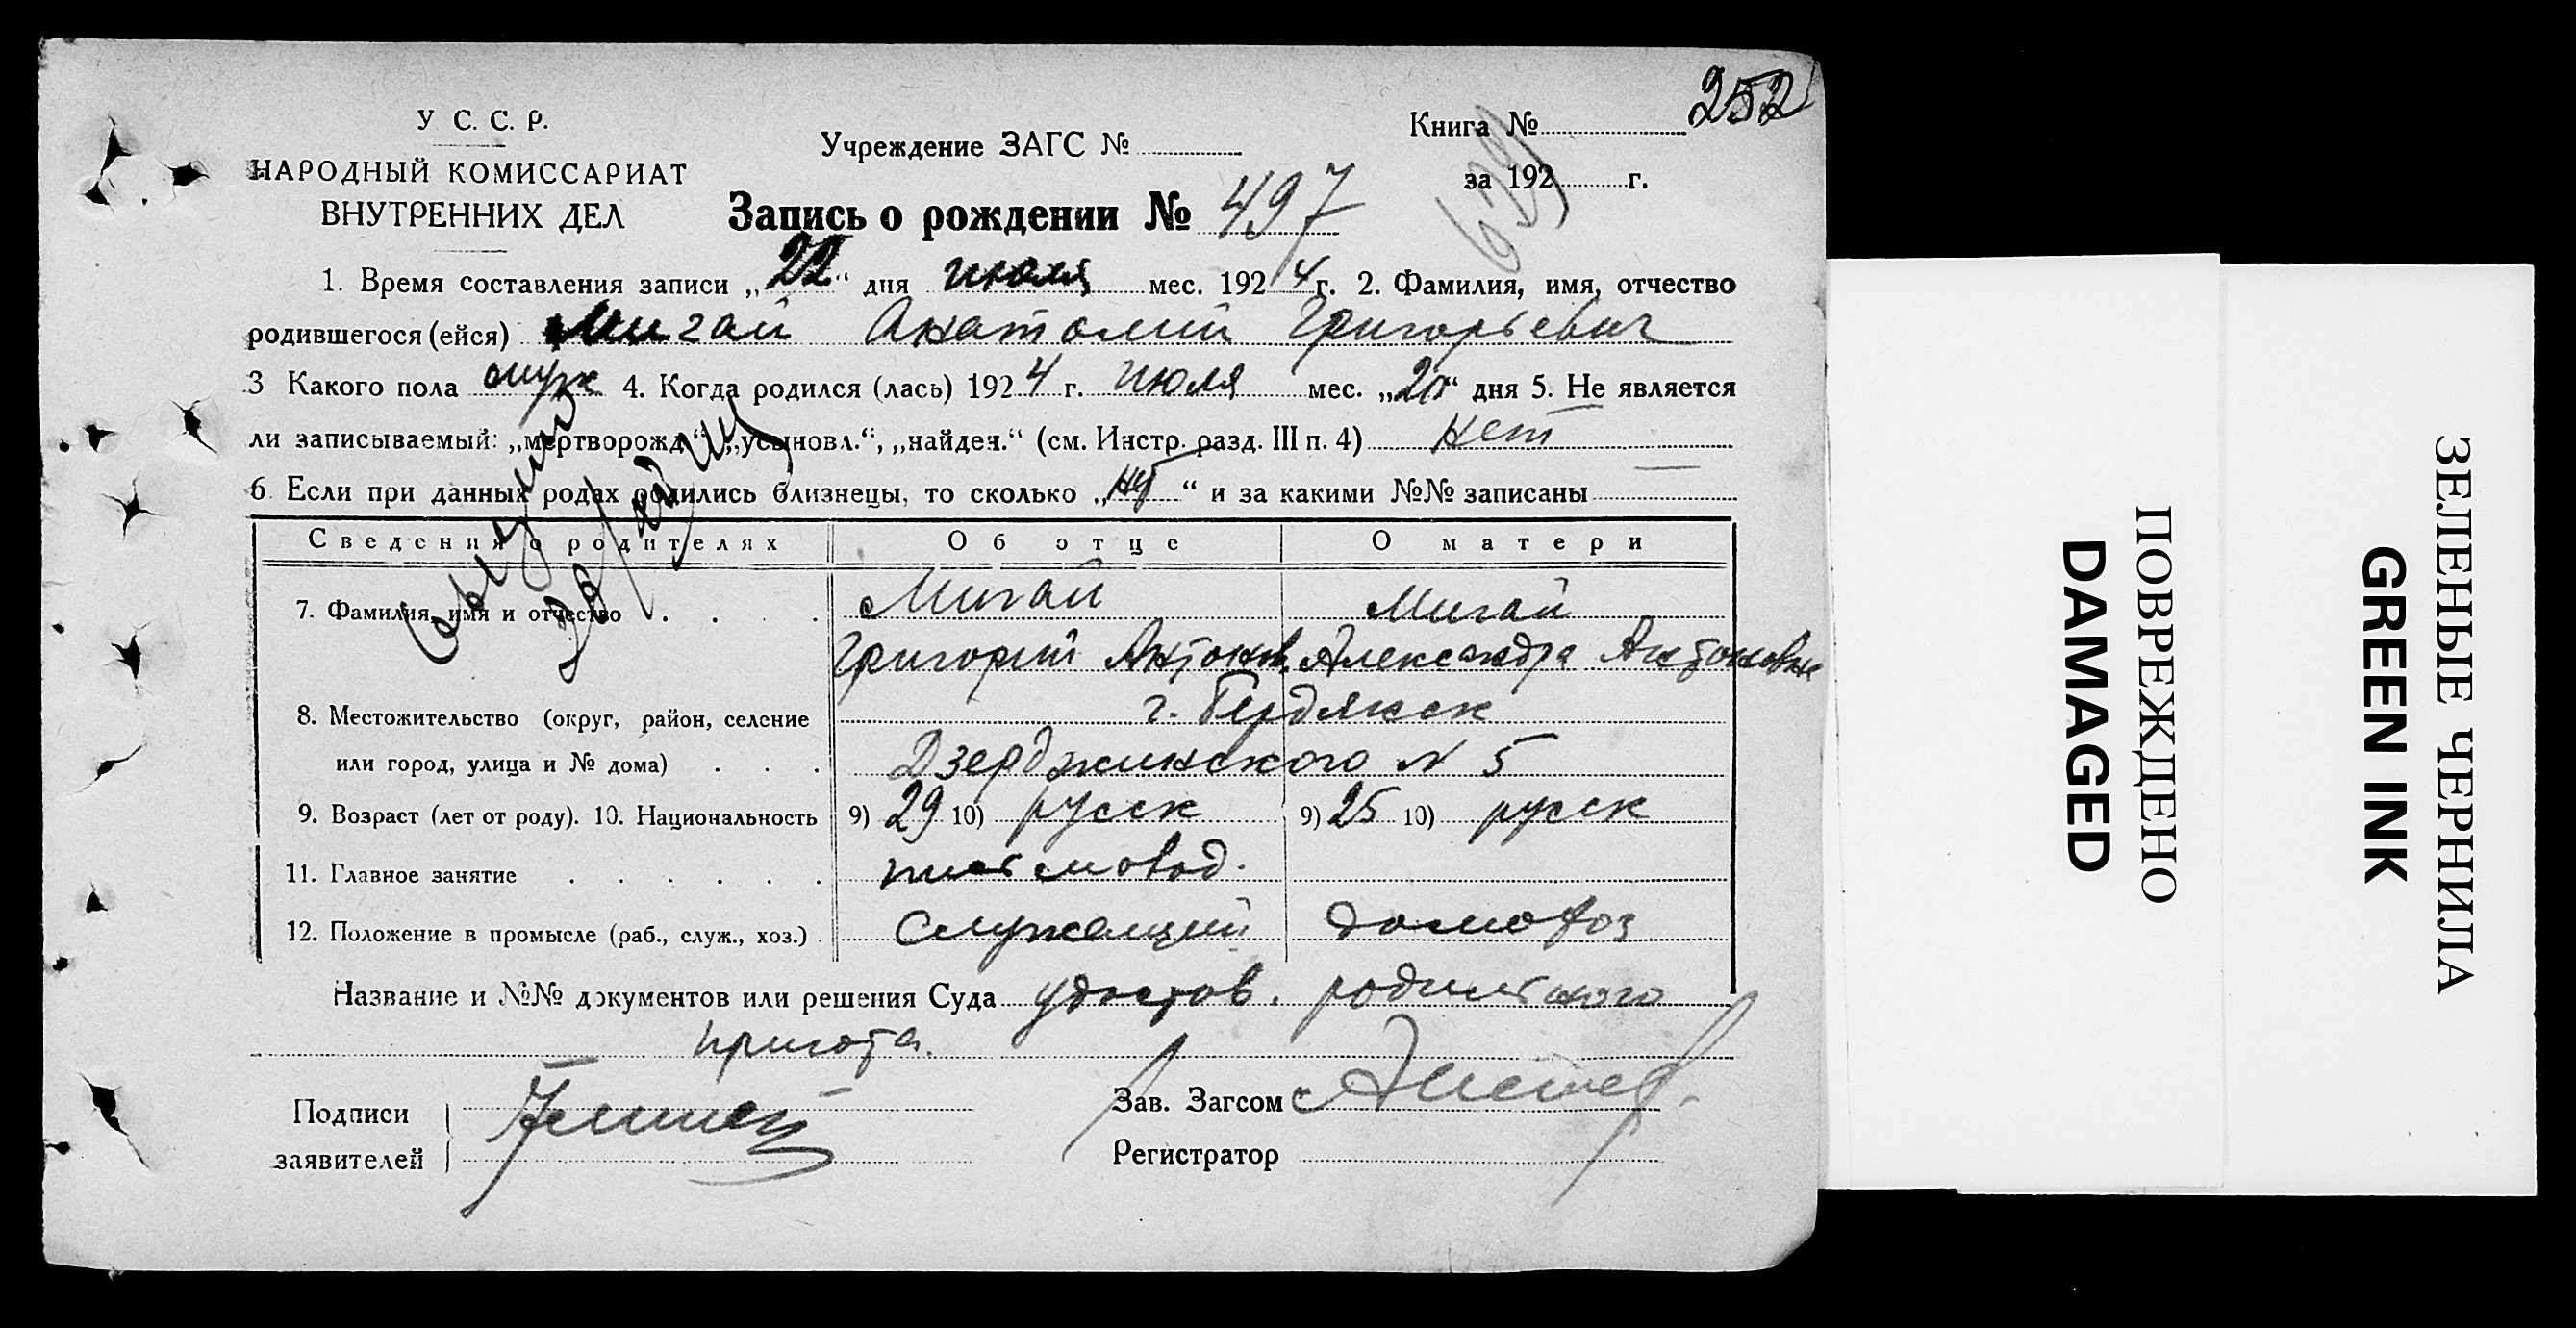 252
У С. С. Р.
НАРОДНЫЙ КОМИССАРИАТ
ВНУТРЕННИХ ДЕЛ
Учреждение ЗАГС №
Книга №
за 192 г.
Запись о рождении № 497
1. Время составления записи „22“ дня июля мес. 1924 г. 2. Фамилия, имя, отчество
родившегося (ейся) Мигай Анатолий Григорьевич
3 Какого пола муж 4. Когда родился (лась) 1924 г. июля мес. „20“ дня 5. Не является
ли записываемый: „мертворожд.“, „усыновл.“, „найден.“ (см. Инстр. разд. III п. 4) нет
6. Если при данных родах родились близнецы, то сколько „нет“ и за какими №№ записаны
Сведения о родителях Об отце О матери
7. Фамилия, имя и отчество Мигай Мигай
Григорий Антонов. Александра Антоновна
8. Местожительство (округ, район, селение г. Бердянск
или город, улица и № дома) Дзерджинского № 5
9. Возраст (лет от роду). 10. Национальность 9) 29 10) русск 9) 25 10) русск
11. Главное занятие письмовод.
12. Положение в промысле (раб., служ., хоз.) Служащий домохоз
Название и №№ документов или решения Суда удостов. родильного
приюта.
Подписи
заявителей
Зав. Загсом
Регистратор
ПОВРЕЖДЕНО
DAMAGED
ЗЕЛЕНЫЕ ЧЕРНИЛА
GREEN INK